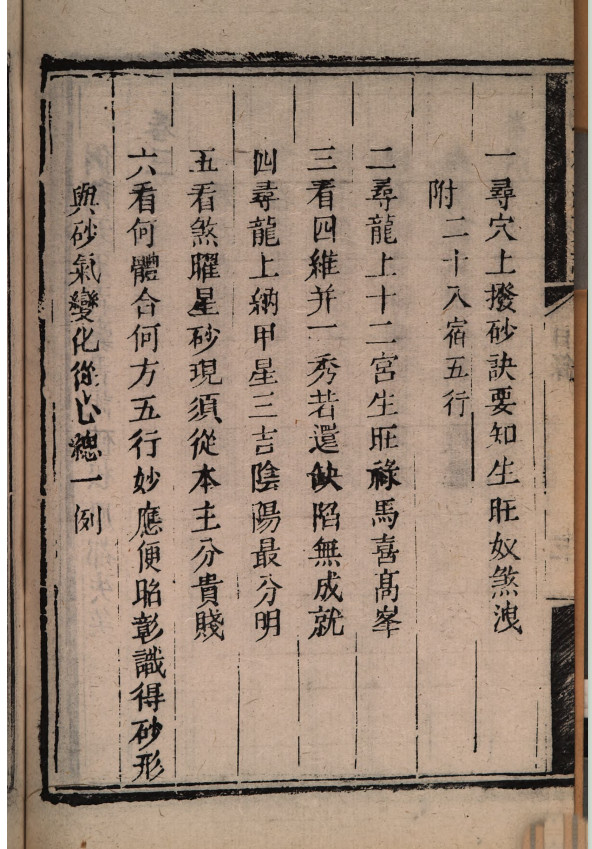 一尋穴上撥砂訣要知生旺奴煞洩
附二十八宿五行
二尋龍上十二宮生旺祿馬喜高峯
三看四維并一秀若還缺陷無成就
四尋龍上納甲星三吉陰陽最分明
五看煞曜星砂現須從本主分貴賤
六看何體合何方五行妙應便昭彰識得砂形
與砂氣變化從心總一例